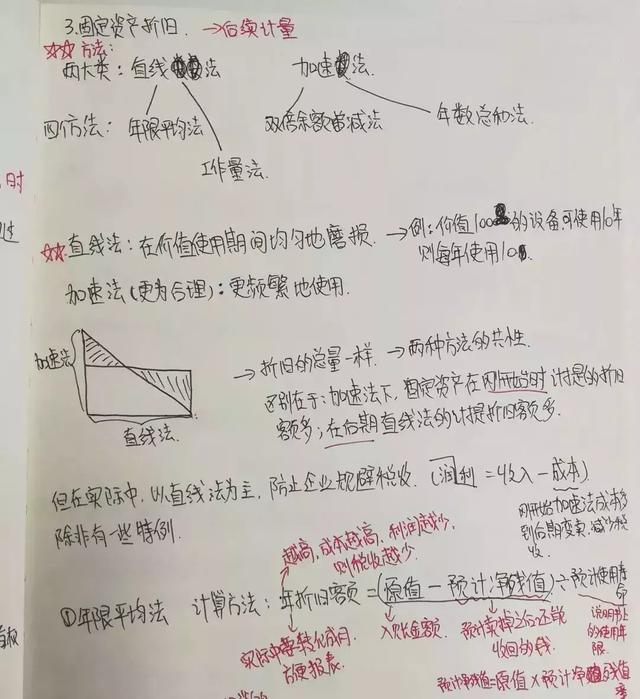 3.固定资产折旧. →后续计量
☆☆方法:
两大类: 直线法 加速法.
四个方法: 年限平均法 双倍余额递减法 年数总和法.
工作量法.
时
过
☆☆直线法: 在价值使用期间均匀地磨损. →例: 价值100的设备可使用10年
则每年使用10
加速法(更为合理): 更频繁地使用.
加速法
直线法.
→折旧的总量一样. →两种方法的共性.
区别在于: 加速法下, 固定资产在刚开始时计提的折旧
额多; 在后期直线法的计提折旧额多.
但在实际中, 以直线法为主, 防止企业规避税收. (润利=收入-成本)
除非有一些特例.
刚开始加速法成本多
到后期变卖,减少税
收.
越高,成本越高,利润越少,
则税收越少.
①年限平均法 计算方法: 年折旧额=(原值-预计净残值)÷预计使用寿
命
实际中要转化成月.
方便报表.
入账金额.
预计卖掉之后还能
收回的钱.
说明书上
的使用年
限.
预计净残值=原值×预计净残值
率